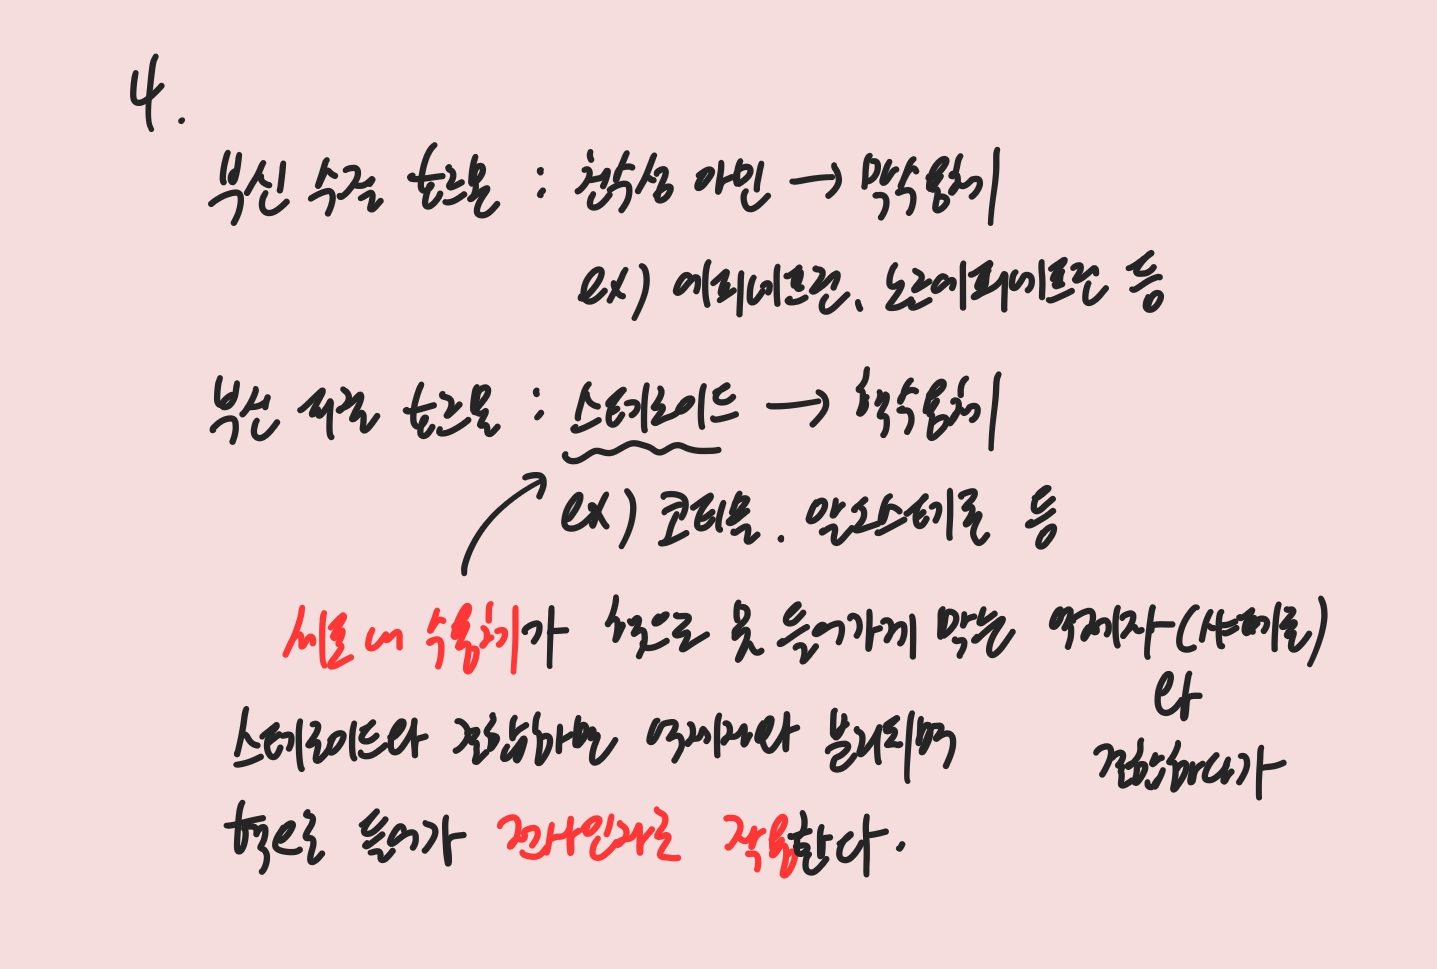 4.
부신 수질 호르몬 : 친수성 아민 → 막수용체
ex) 에피네프린, 노르에피네프린 등
부신 피질 호르몬 : 스테로이드 → 핵수용체
ex) 코티졸, 알도스테론 등
세포 내 수용체가 핵으로 못 들어가게 막는 억제자(샤페론)
와
결합하다가
스테로이드와 결합하면 억제자와 분리되며
핵으로 들어가 전사인자로 작용한다.